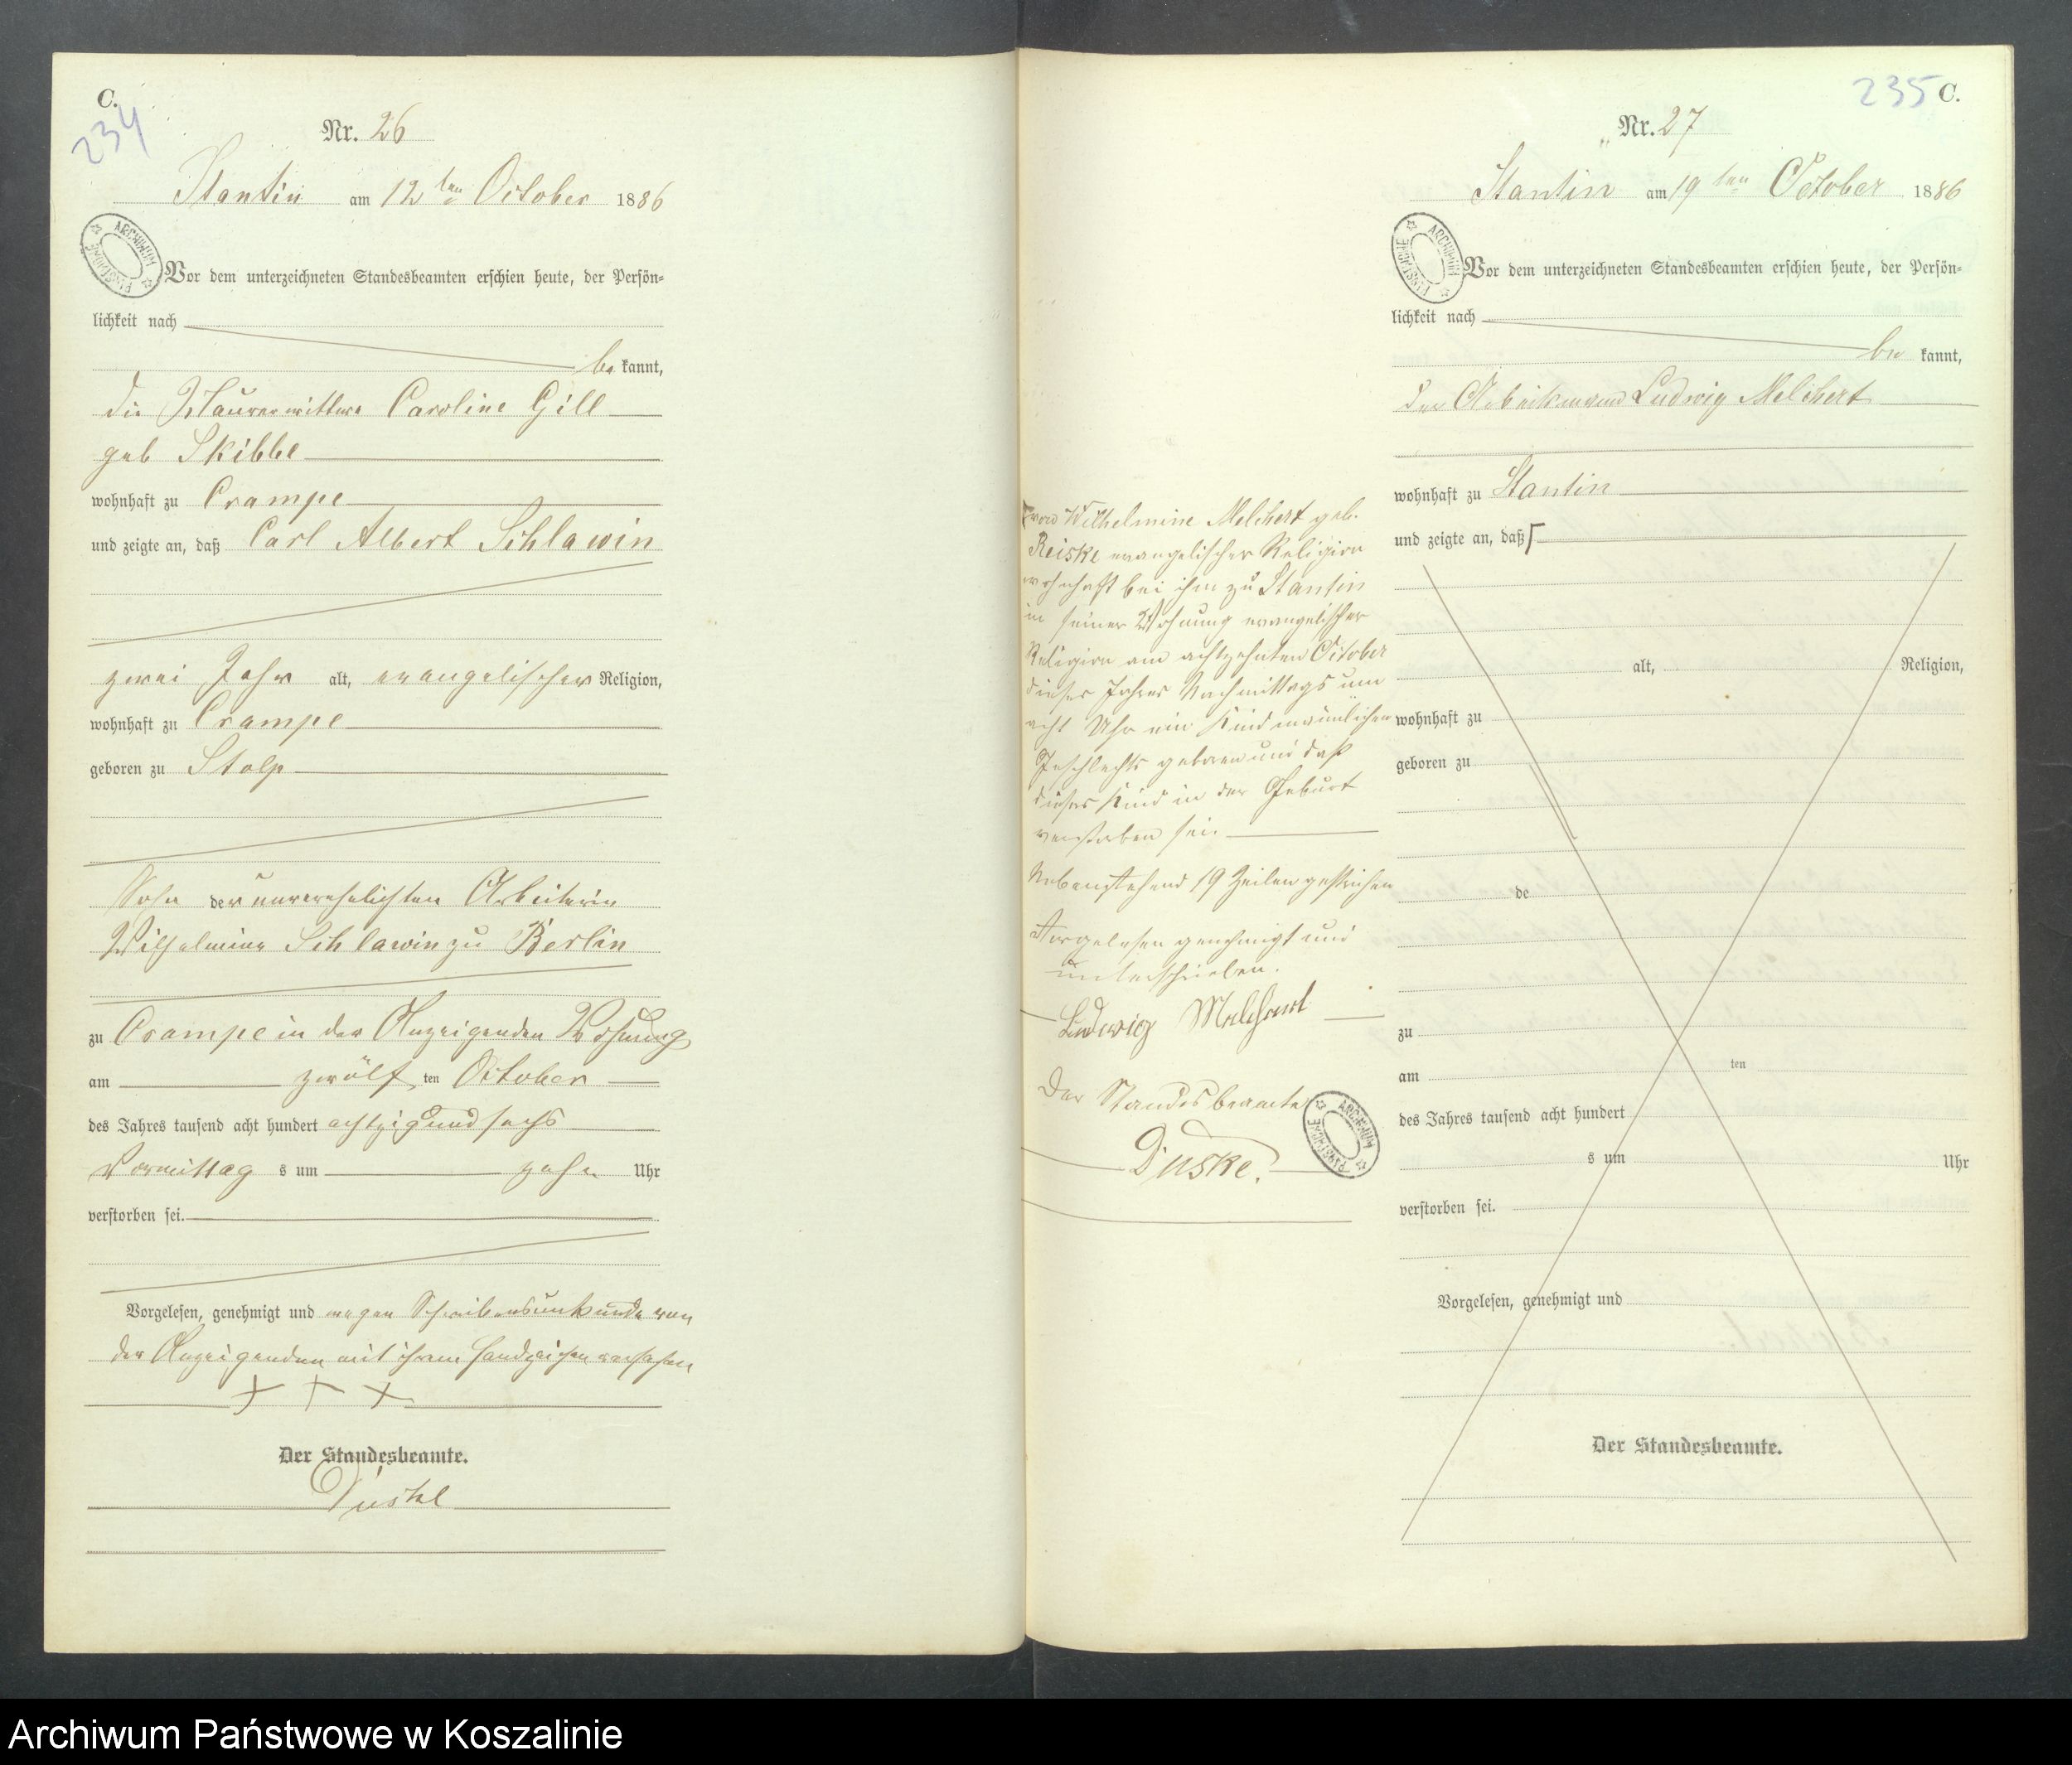 C.
234
Nr. 26
Stantin am 12ten October 1886
ARCHIWUM PAŃSTWOWE
Vor dem unterzeichneten Standesbeamten erschien heute, der Persön-
lichkeit nach
bekannt,
die Maurerwittwe Caroline Gill
geb Skibbe
wohnhaft zu Crampe
und zeigte an, daß Carl Albert Schlawin
zwei Jahr alt, evangelischer Religion,
wohnhaft zu Crampe
geboren zu Stolp
Sohn der unverehelichten Arbeiterin
Wilhelmine Schlawin zu Berlin
zu Crampe in der Anzeigenden Wohnung
am zwölf ten October
des Jahres tausend acht hundert achtzig und sechs
Vormittag s um zehn Uhr
verstorben sei.
Vorgelesen, genehmigt und wegen Schreibensunkunde von
der Anzeigenden mit ihrem Handzeichen versehen
+ + +
Der Standesbeamte.
Duske
235 C.
Nr. 27
Stantin am 19ten October 1886
ARCHIWUM PAŃSTWOWE
Vor dem unterzeichneten Standesbeamten erschien heute, der Persön-
lichkeit nach
bekannt,
der Arbeitsmann Ludwig Melchert
wohnhaft zu Stantin
und zeigte an, daß
alt, Religion,
wohnhaft zu
geboren zu
de
zu
am ten
des Jahres tausend acht hundert
s um Uhr
verstorben sei.
Vorgelesen, genehmigt und
Der Standesbeamte.
Wilhelmine Melchert geb.
Reiske evangelischer Religion
wohnhaft bei ihm zu Stantin
in seiner Wohnung evangelischer
Religion am achtzehnten October
dieses Jahres Nachmittags um
acht Uhr ein Kind männlichen
Geschlechts geboren und daß
dieses Kind in der Geburt
verstorben sei.
Nebenstehend 19 Zeilen gestrichen
Vorgelesen genehmigt und
unterschrieben.
Ludwig Melchert
Der Standesbeamte
Duske.
ARCHIWUM PAŃSTWOWE
Archiwum Państwowe w Koszalinie